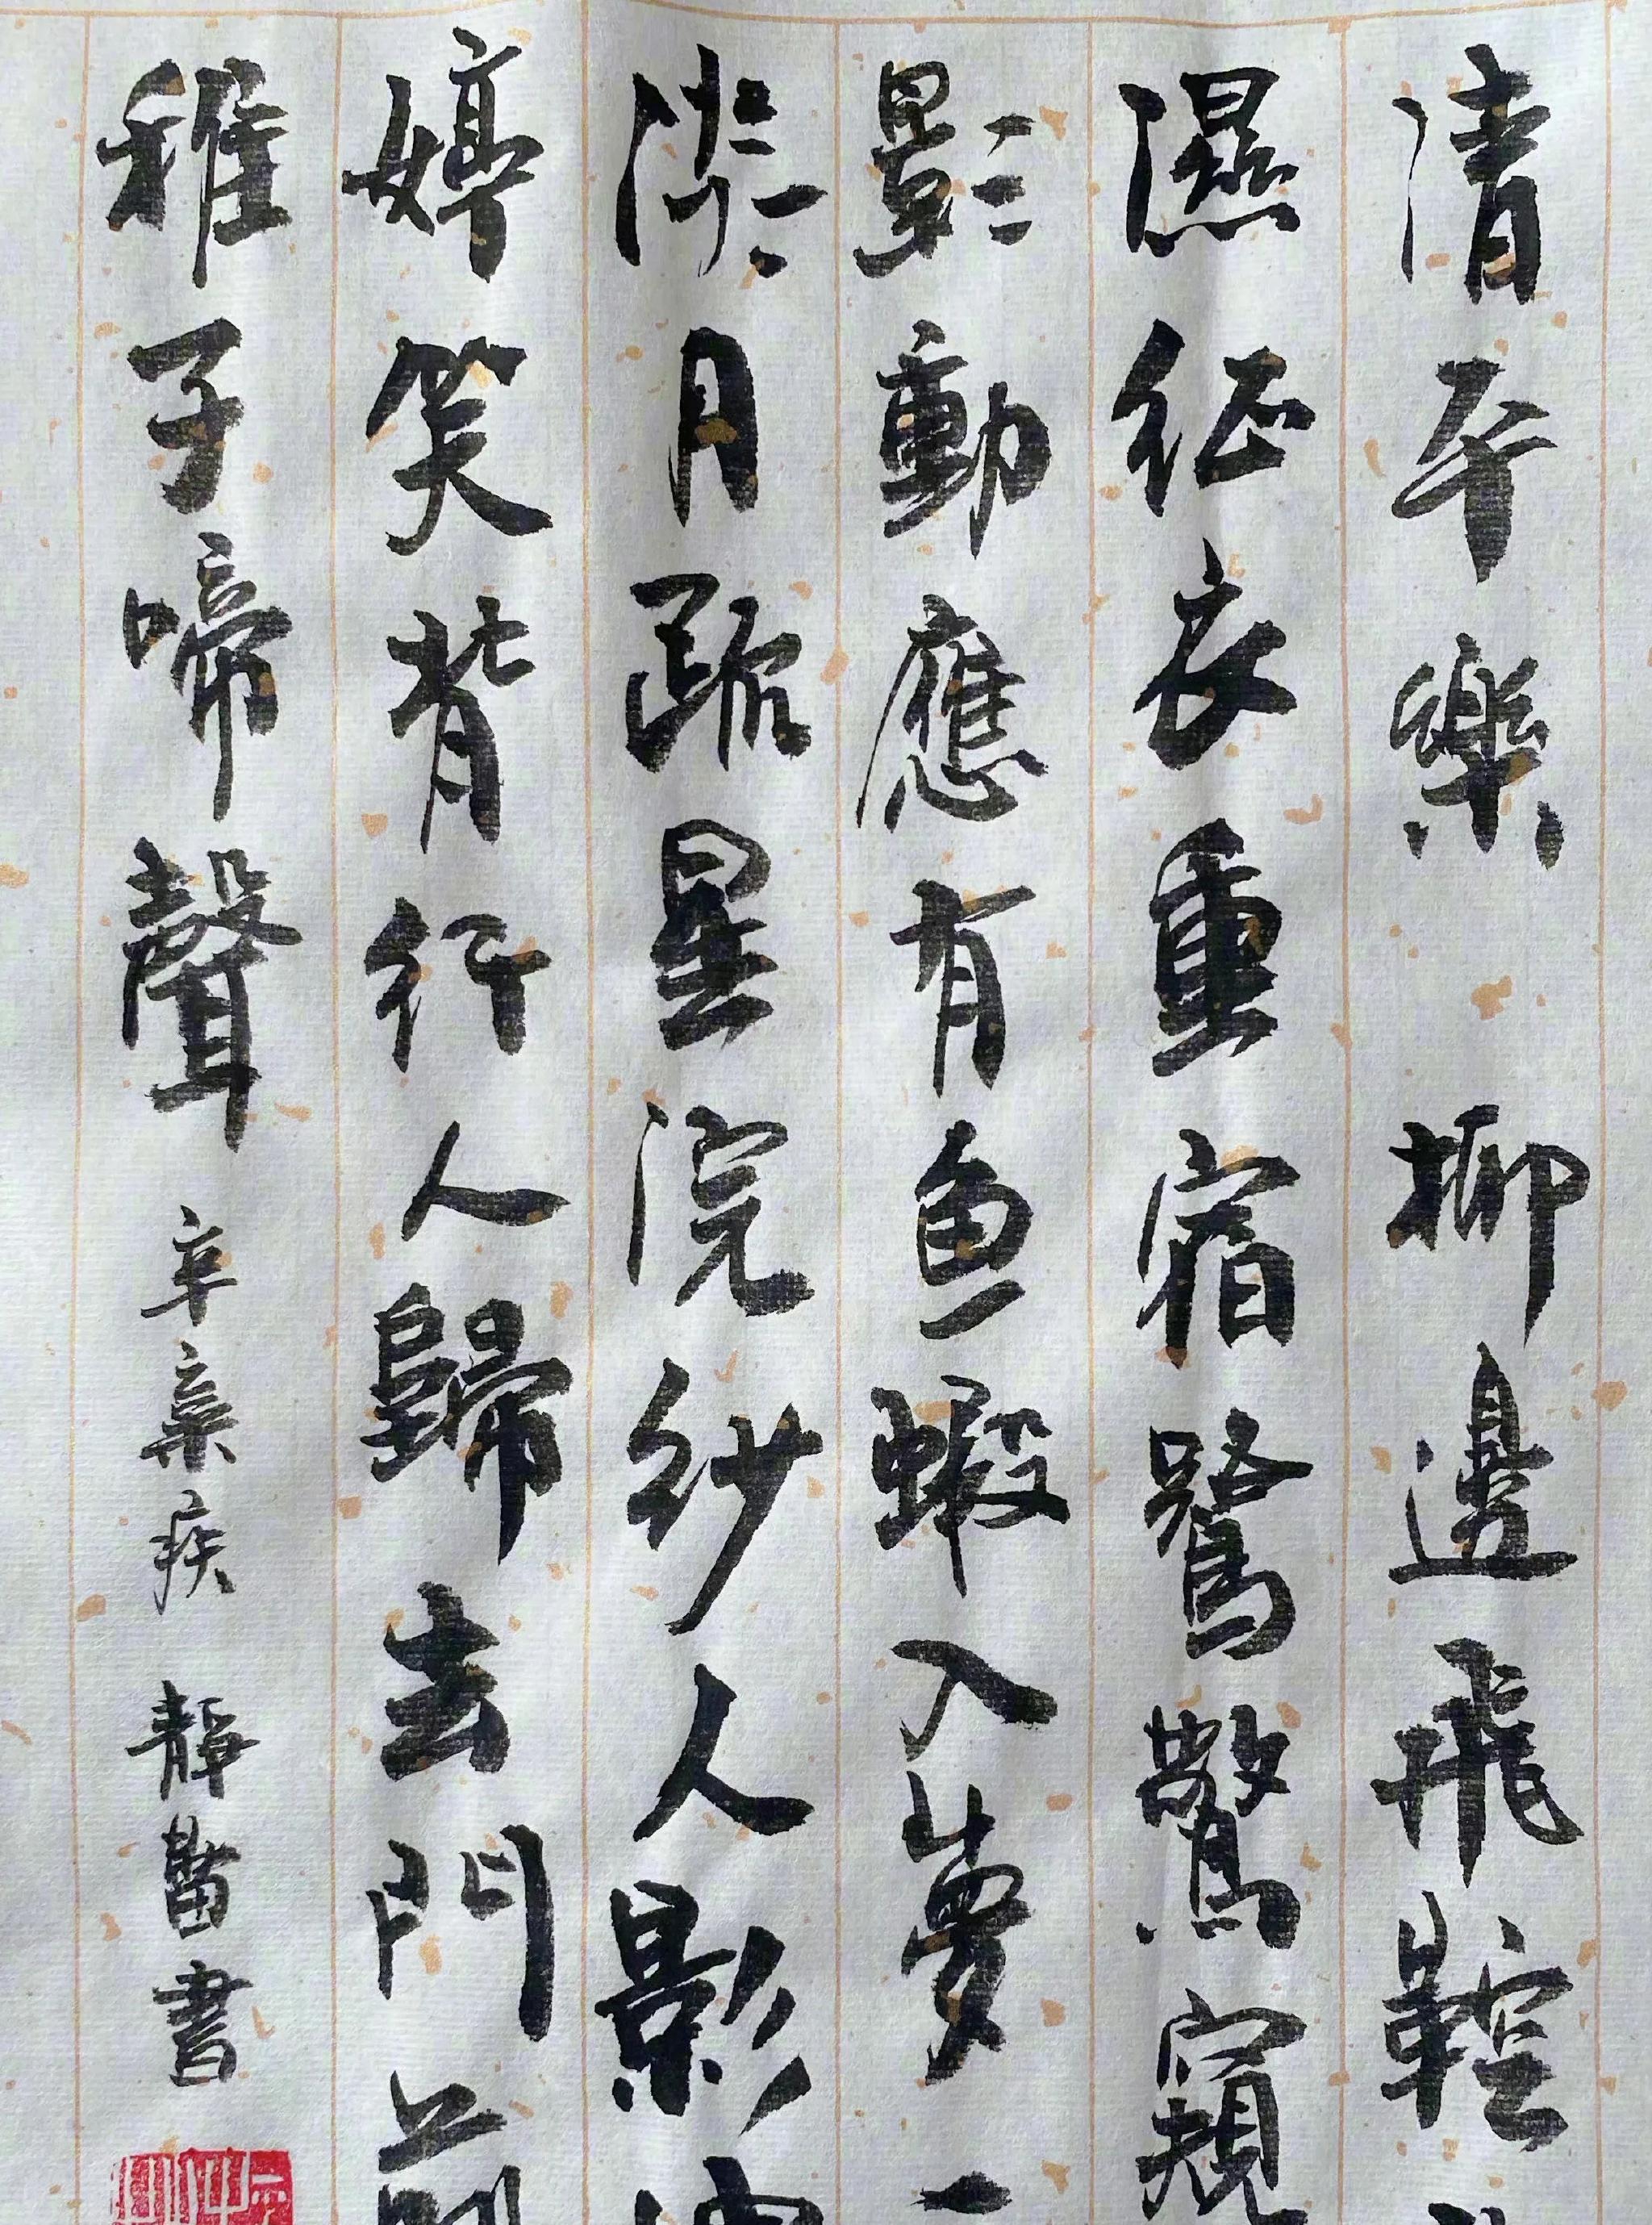 清平樂 柳邊飛鞚
濕征衣重宿鷺驚窺
影動應有魚蝦入夢一
漈月疏星浣紗人影
婷笑背行人歸去門前
稚子啼聲 辛棄疾 靜 書